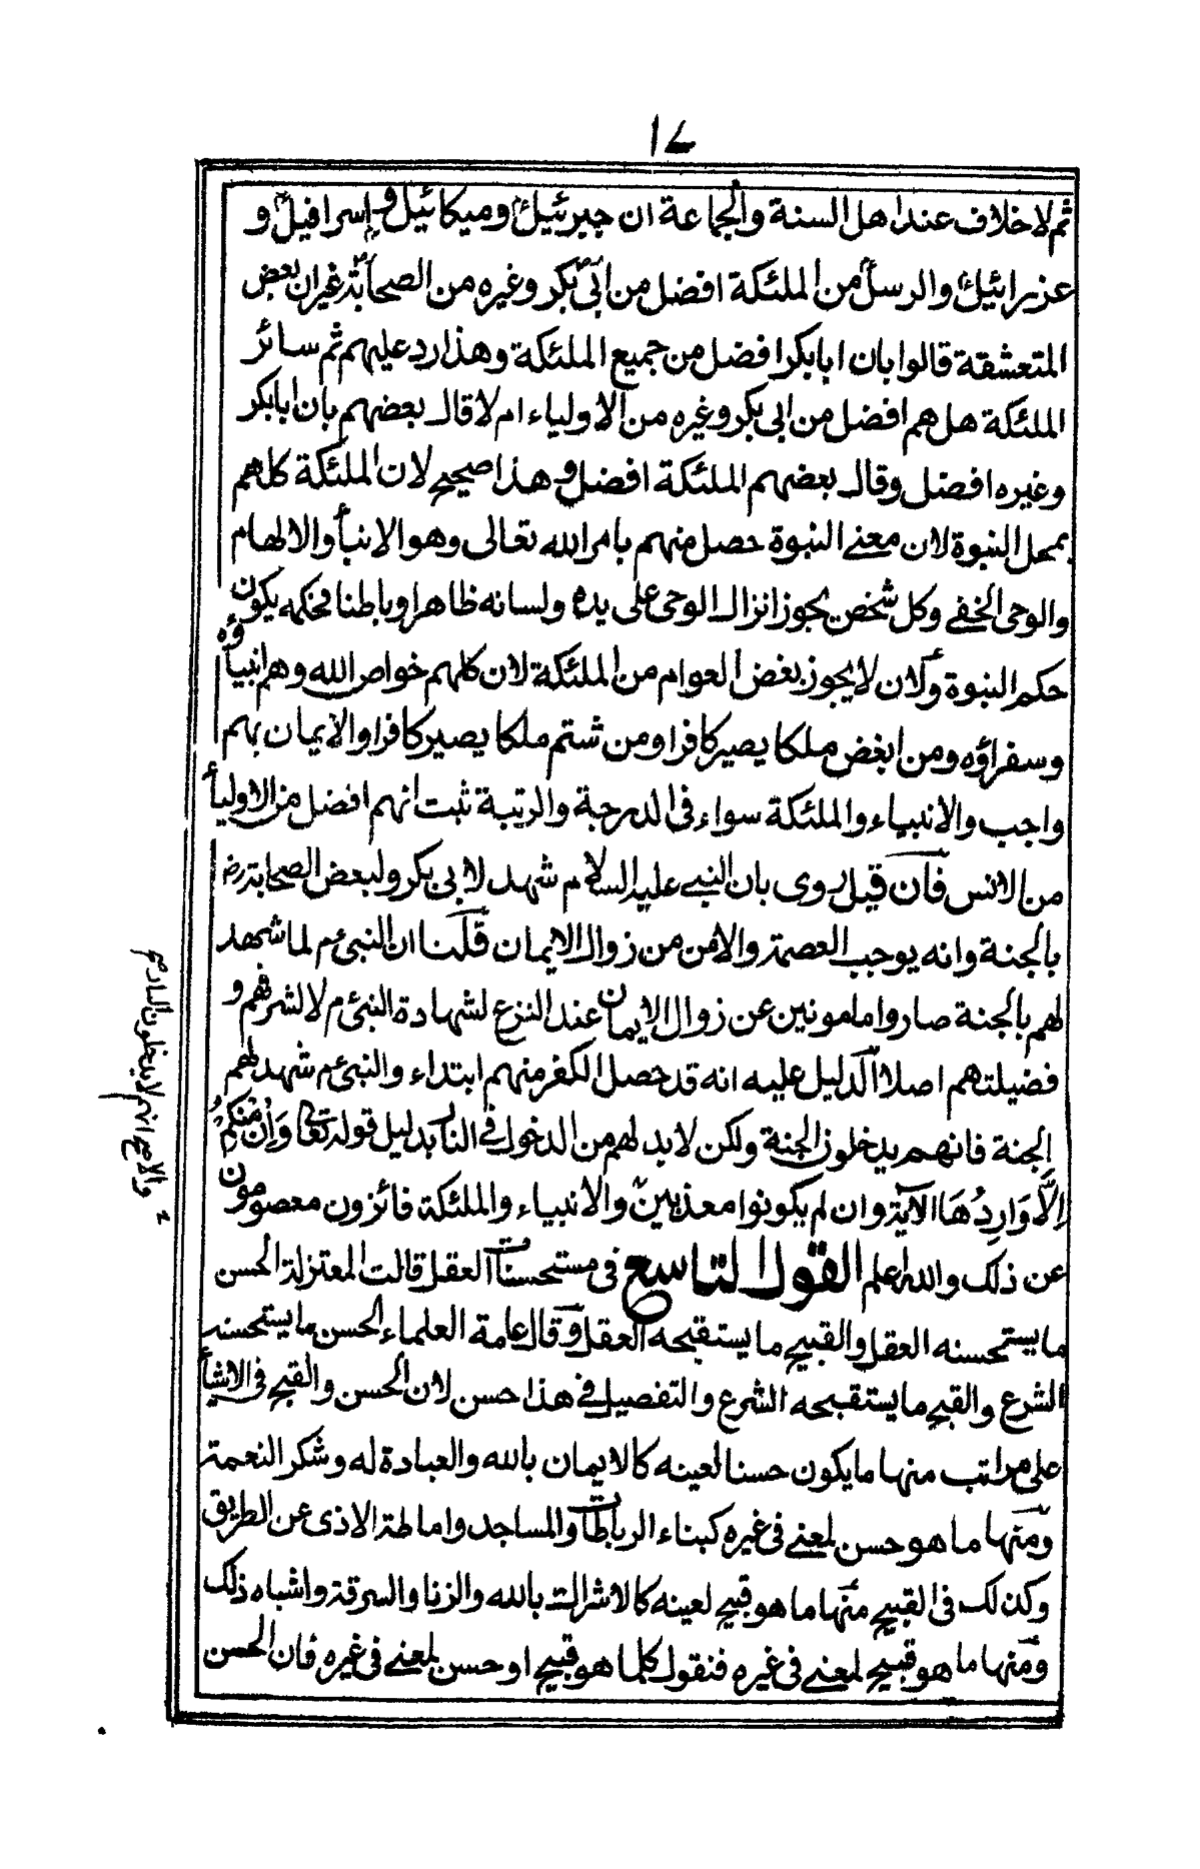 ١٧
ثم لا خلاف عند اهل السنة والجماعة ان جبرئيل وميكائيل واسرافيل و
عزرائيل والرسل من الملئكة افضل من ابى بكر وغيره من الصحابة غير ان بعض
المتعشقة قالوا بان ابابكر افضل من جميع الملئكة وهذا رد عليهم ثم سائر
الملئكة هل هم افضل من ابى بكر وغيره من الاولياء ام لا قال بعضهم بان ابابكر
وغيره افضل وقال بعضهم الملئكة افضل وهذا صحيح لان الملئكة كلهم
بمحل النبوة لان معنى النبوة حصل منهم بامر الله تعالى وهو الانباء والالهام
والوحى الخفى وكل شخص يجوز انزال الوحى على يده ولسانه ظاهرا وباطنا فحكمه يكون
حكم النبوة ولان لا يجوز بغض العوام من الملئكة لان كلهم خواص الله وهم انبياؤه
وسفراؤه ومن ابغض ملكا يصير كافرا ومن شتم ملكا يصير كافرا والايمان بهم
واجب والانبياء والملئكة سواء فى الدرجة والرتبة ثبت انهم افضل من الاولياء
من الانس فان قيل روى بان النبى عليه السلام شهد لابى بكر ولبعض الصحابة رض
بالجنة وانه يوجب العصمة والامن من زوال الايمان قلنا ان النبى ءم لما شهد
لهم بالجنة صاروا مامونين عن زوال الايمان عند النزع لشهادة النبى ءم لا لشرفهم و
فضيلتهم اصلا الدليل عليه انه قد حصل الكفر منهم ابتداء والنبى ءم شهد لهم
الجنة فانهم يدخلون الجنة ولكن لا بد لهم من الدخول فى النار بدليل قوله تعالى وَاِنْ مِنْكُمْ
اِلَّا وَارِدُهَا الآية وان لم يكونوا معذبين والانبياء والملئكة فائزون معصومون
عن ذلك والله اعلم القول التاسع فى مستحسنات العقل قالت المعتزلة الحسن
ما يستحسنه العقل والقبيح ما يستقبحه العقل وقال عامة العلماء الحسن ما يستحسنه
الشرع والقبح ما يستقبحه الشرع والتفصيل فى هذا حسن لان الحسن والقبح فى الاشياء
على مراتب منها ما يكون حسنا لعينه كالايمان بالله والعبادة له وشكر النعمة
ومنها ما هو حسن لمعنى فى غيره كبناء الرباطات والمساجد واماطة الاذى عن الطريق
وكذلك فى القبيح منها ما هو قبيح لعينه كالاشراك بالله والزنا والسرقة واشباه ذلك
ومنها ما هو قبيح لمعنى فى غيره فنقول كلما هو قبيح او حسن لمعنى فى غيره فان الحسن
والاصح انهم لا يدخلون النار